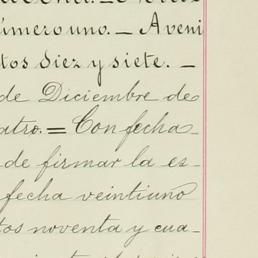 úmero uno. — Aveni
tos diez y siete. —
de Diciembre de
atro. = Con fecha
de firmar la es-
fecha veintiuno
tos noventa y cua-